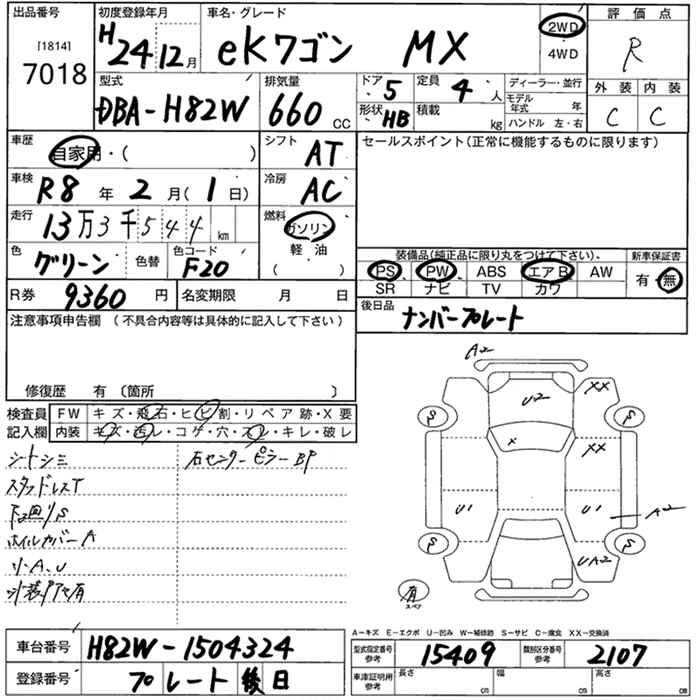 出品番号 初度登録年月 車名・グレード 評価点
[1814] 7018
H 24 12月 eKワゴン MX 2WD 4WD R
型式 排気量 ドア 5 定員 4人 ディーラー・並行 外装 内装
DBA-H82W 660 CC 形状 HB 積載 kg モデル年式 年 C C
ハンドル 左・右
車歴 自家用・( ) シフト AT セールスポイント(正常に機能するものに限ります)
車検 R8年 2月(1日) 冷房 AC
走行 13万3千544km 燃料 ガソリン 軽・油
色 グリーン 色替 色コード F20
装備品(純正品に限り丸をつけて下さい)、 新車保証書
PS PW ABS エアB AW 有・無
SR ナビ TV カワ
R券 9360円 名変期限 月 日 後日品 ナンバープレート
注意事項申告欄 (不具合内容等は具体的に記入して下さい)
修復歴 有 〔箇所 〕
検査員 FW キズ・飛石・ヒビ割・リペア跡・X要
記入欄 内装 キズ・汚レ・コゲ・穴・スレ・キレ・破レ
シートシミ 右センターピラーBP
スタッドレスT
下回リS
ホイルカバーA
小A、U
A2
U2 XX
S S
X XX
U1 U1 A2
S S
UA2
有 スペア
A−キズ E−エクボ U−凹み W−補修跡 S−サビ C−腐食 XX−交換済
車台番号 H82W-1504324 型式指定番号 参考 15409 類別区分番号 参考 2107
登録番号 プレート後日 車庫証明用 参考 長さ cm 幅 cm 高さ cm